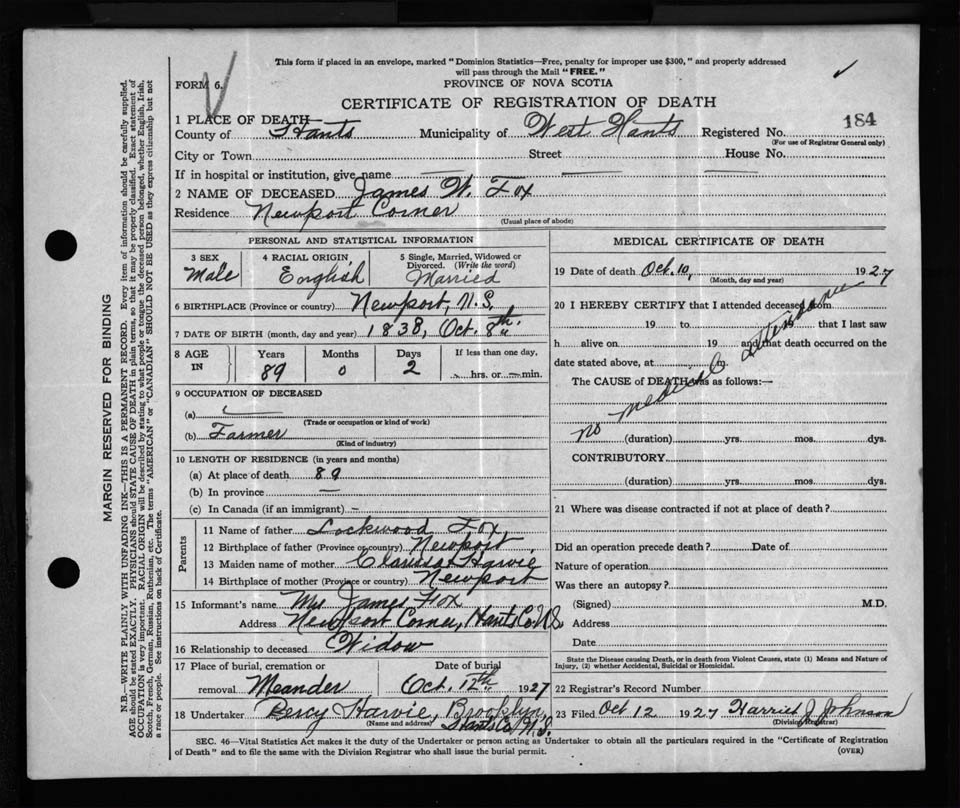 This form if placed in an envelope, marked "Dominion Statistics—Free, penalty for improper use $300," and properly addressed
will pass through the Mail "FREE."
FORM 6.
PROVINCE OF NOVA SCOTIA
CERTIFICATE OF REGISTRATION OF DEATH
1 PLACE OF DEATH—
County of Hants Municipality of West Hants Registered No. 184
(For use of Registrar General only)
City or Town Street House No.
If in hospital or institution, give name
2 NAME OF DECEASED James W. Fox
Residence Newport Corner
(Usual place of abode)
PERSONAL AND STATISTICAL INFORMATION
3 SEX
Male
4 RACIAL ORIGIN
English
5 Single, Married, Widowed or
Divorced. (Write the word)
Married
6 BIRTHPLACE (Province or country) Newport, N.S.
7 DATE OF BIRTH (month, day and year) 1838, Oct. 8th.
8 AGE
IN
Years
89
Months
0
Days
2
If less than one day,
hrs. or min.
9 OCCUPATION OF DECEASED
(a)
(Trade or occupation or kind of work)
(b) Farmer
(Kind of industry)
10 LENGTH OF RESIDENCE (in years and months)
(a) At place of death 89
(b) In province —
(c) In Canada (if an immigrant) —
Parents
11 Name of father Lockwood Fox
12 Birthplace of father (Province or country) Newport
13 Maiden name of mother Clarissa Harvie
14 Birthplace of mother (Province or country) Newport
15 Informant's name Mrs James Fox
Address Newport Corner, Hants Co. N.S.
16 Relationship to deceased Widow
17 Place of burial, cremation or
removal Meander
Date of burial
Oct. 12th 1927
18 Undertaker Percy Harvie, Brooklyn,
(Name and address) Hants Co. N.S.
MEDICAL CERTIFICATE OF DEATH
19 Date of death Oct. 10, 1927
(Month, day and year)
20 I HEREBY CERTIFY that I attended deceased from
19 to 19 that I last saw
h alive on 19 and that death occurred on the
date stated above, at m.
The CAUSE of DEATH was as follows:—
no medical attendance
(duration) yrs. mos. dys.
CONTRIBUTORY
(duration) yrs. mos. dys.
21 Where was disease contracted if not at place of death?
Did an operation precede death? Date of
Nature of operation
Was there an autopsy?
(Signed) M.D.
Address
Date
State the Disease causing Death, or in death from Violent Causes, state (1) Means and Nature of
Injury, (2) whether Accidental, Suicidal or Homicidal.
22 Registrar's Record Number
23 Filed Oct 12 1927 Harriet J. Johnson
(Division Registrar)
SEC. 46—Vital Statistics Act makes it the duty of the Undertaker or person acting as Undertaker to obtain all the particulars required in the "Certificate of Registration
of Death" and to file the same with the Division Registrar who shall issue the burial permit.
(OVER)
MARGIN RESERVED FOR BINDING
N.B.—WRITE PLAINLY WITH UNFADING INK—THIS IS A PERMANENT RECORD. Every item of information should be carefully supplied.
AGE should be stated EXACTLY. PHYSICIANS should STATE CAUSE OF DEATH in plain terms, so that it may be properly classified. Exact statement of
OCCUPATION is very important. RACIAL ORIGIN will be described by stating to what people or tongue the deceased person belonged, whether English, Irish,
Scotch, French, German, Russian, Ruthenian, etc. The terms "AMERICAN" or "CANADIAN" SHOULD NOT BE USED as they express citizenship but not
a race or people. See instructions on back of Certificate.